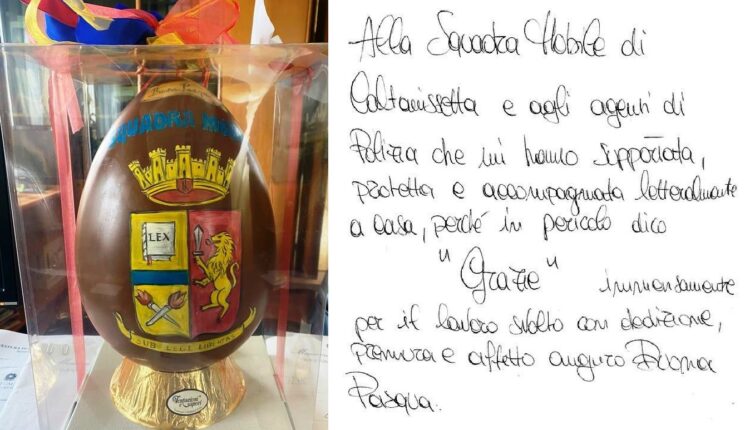 Buona Pasqua
SQUADRA MOBILE
LEX
SUB LEGE LIBERTAS
Tentazioni
e sapori
Alla Squadra Mobile di
Caltanissetta e agli agenti di
Polizia che mi hanno supportata,
protetta e accompagnata letteralmente
a casa, perché in pericolo dico
"Grazie" immensamente
per il lavoro svolto con dedizione,
premura e affetto auguro Buona
Pasqua.